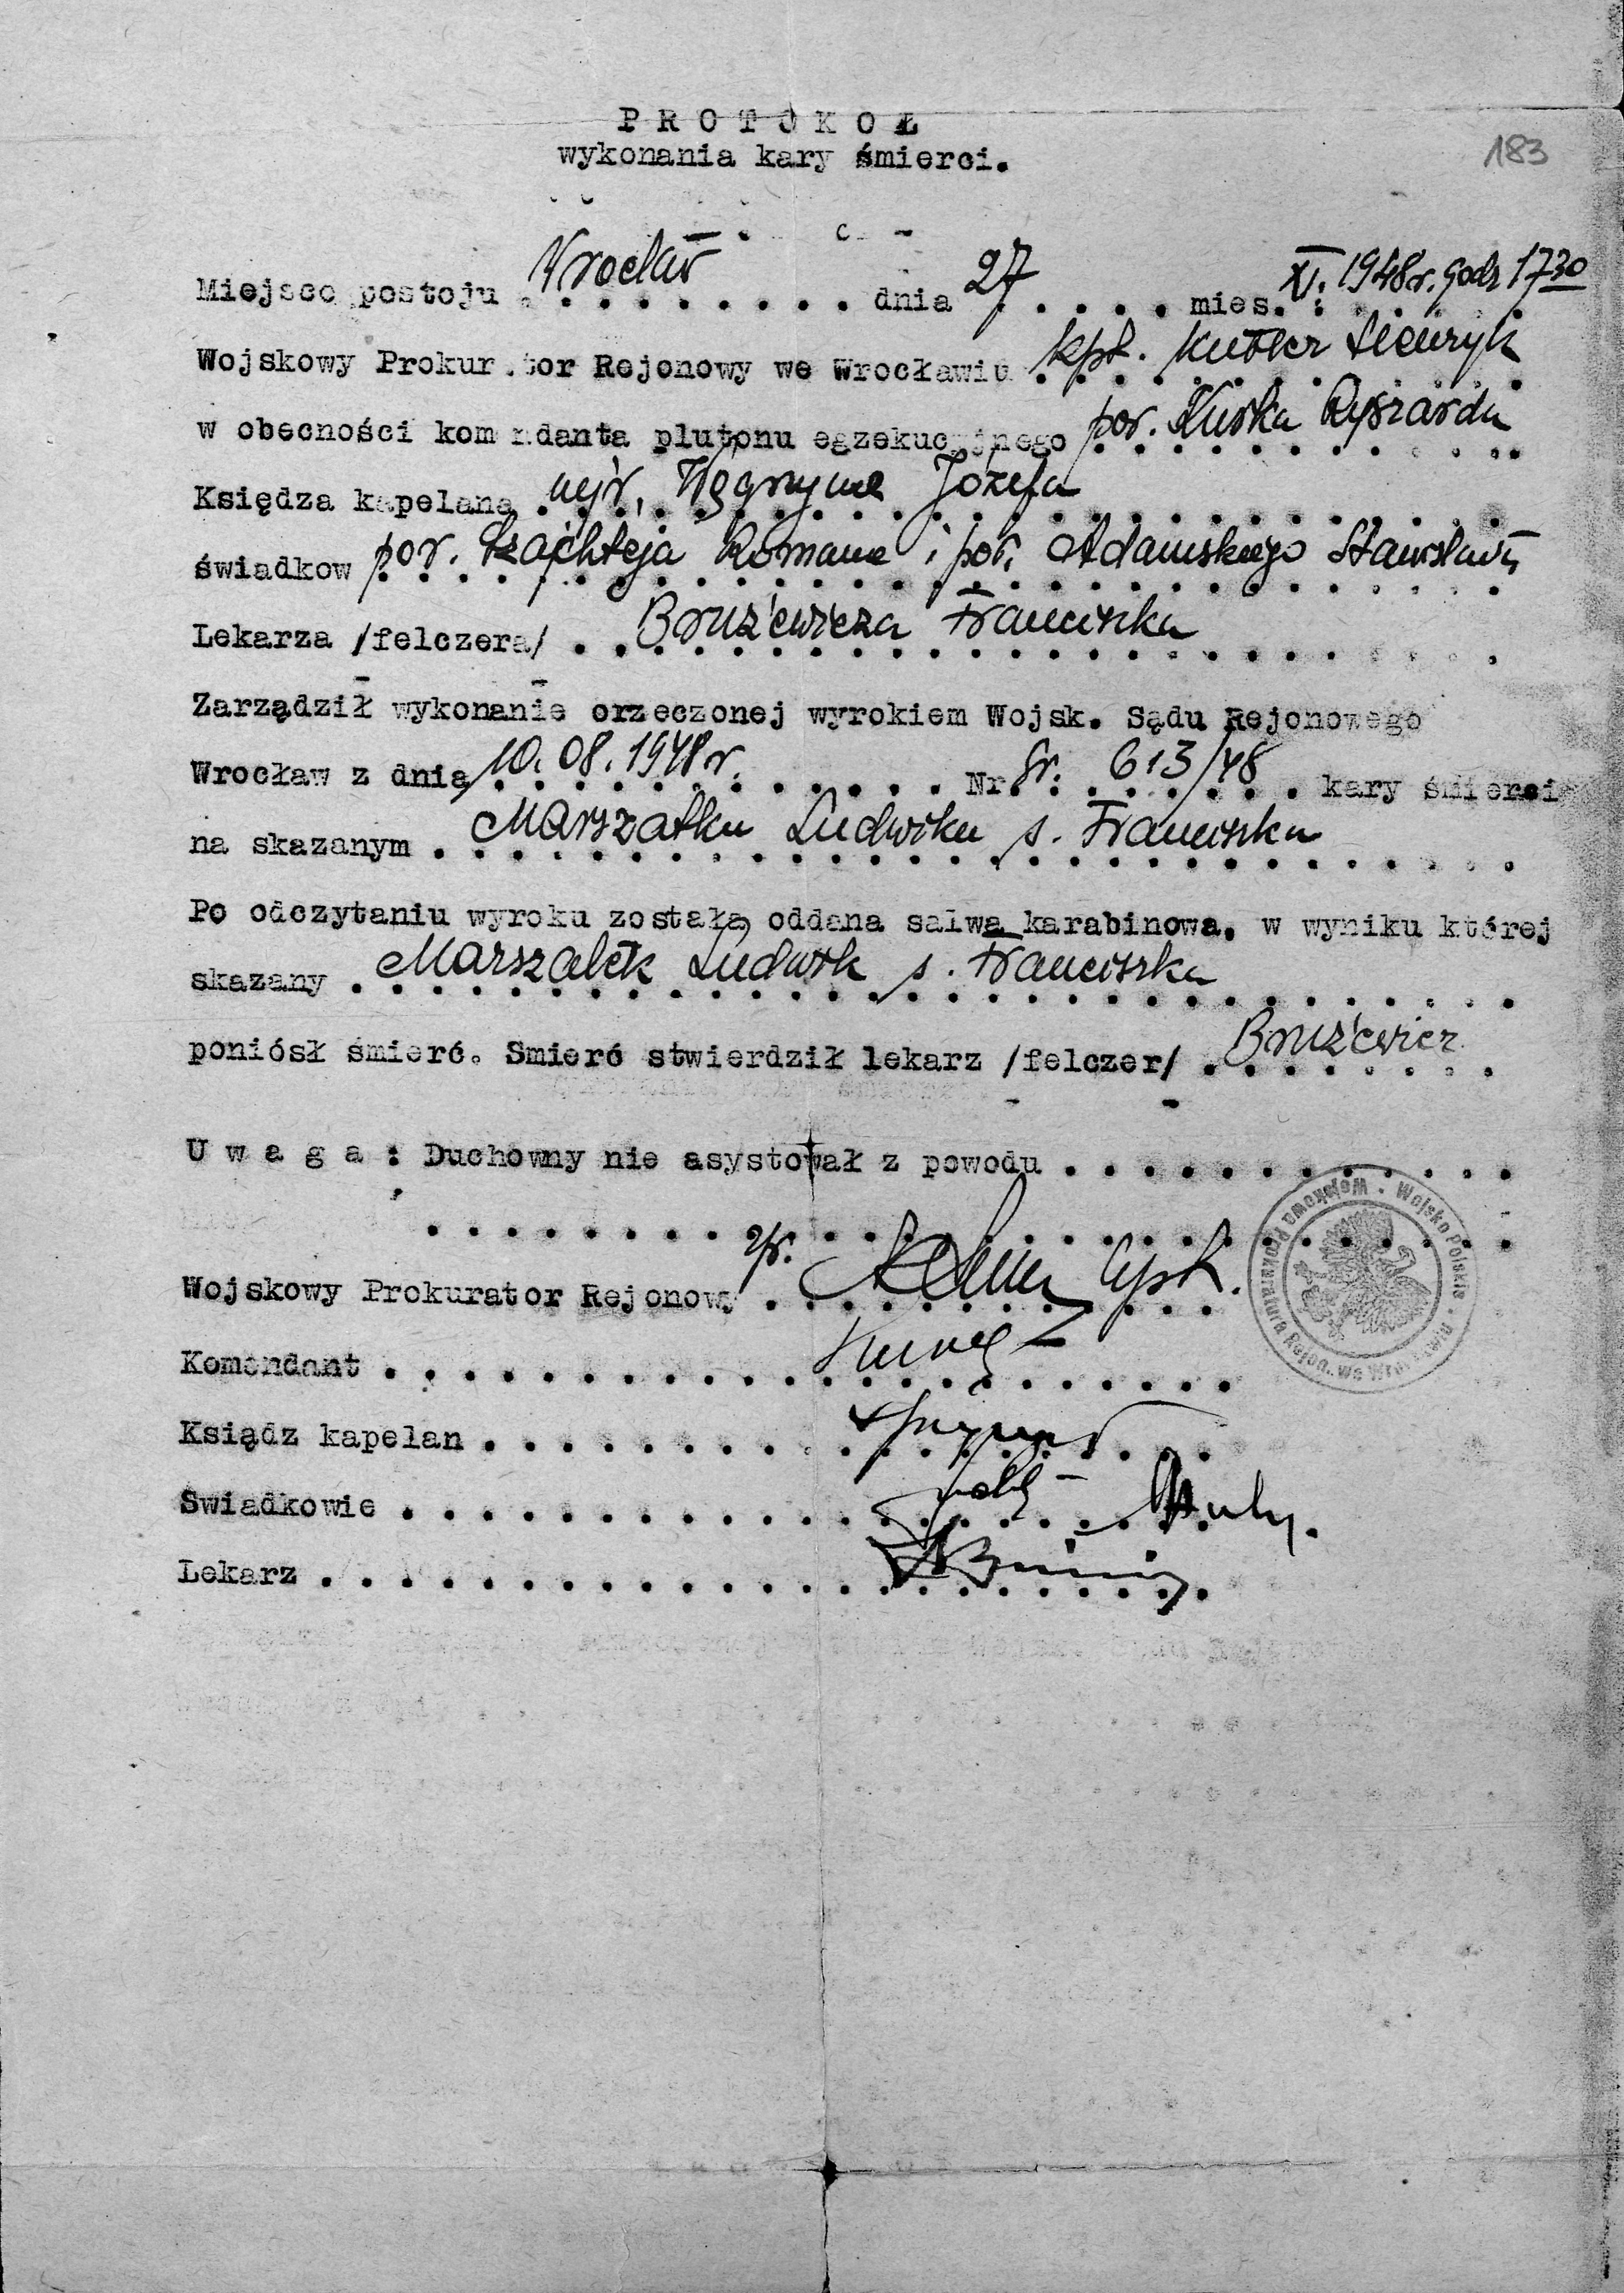 PROTOKOŁ
wykonania kary śmierci.
183
Miejsce postoju Wrocław dnia 27 mies. XI. 1948r. godz 17 30
Wojskowy Prokurator Rejonowy we Wrocławiu kpt. Kutner Henryk
w obecności komendanta plutonu egzekucyjnego por. Kurka Ryszarda
Księdza kapelana mjr. Węgrzyna Józefa
świadkow por. Romana i por. Adamskiego Stanisława
Lekarza /felczera/ Bruziewicza Franciszka
Zarządził wykonanie orzeczonej wyrokiem Wojsk. Sądu Rejonowego
Wrocław z dnia 10.08.1948r. Nr Sr. 613/48 kary śmierci
na skazanym Marszałku Ludwiku s. Franciszka
Po odczytaniu wyroku została oddana salwa karabinowa, w wyniku której
skazany Marszałek Ludwik s. Franciszka
poniósł śmierć. Smierć stwierdził lekarz /felczer/ Bruziewicz
Uwaga: Duchowny nie asystował z powodu
Wojskowy Prokurator Rejonowy kpt.
Komendant
Ksiądz kapelan
Swiadkowie
Lekarz
Wojsko Polskie · Wojskowa Prokuratura Rejon. we Wrocławiu